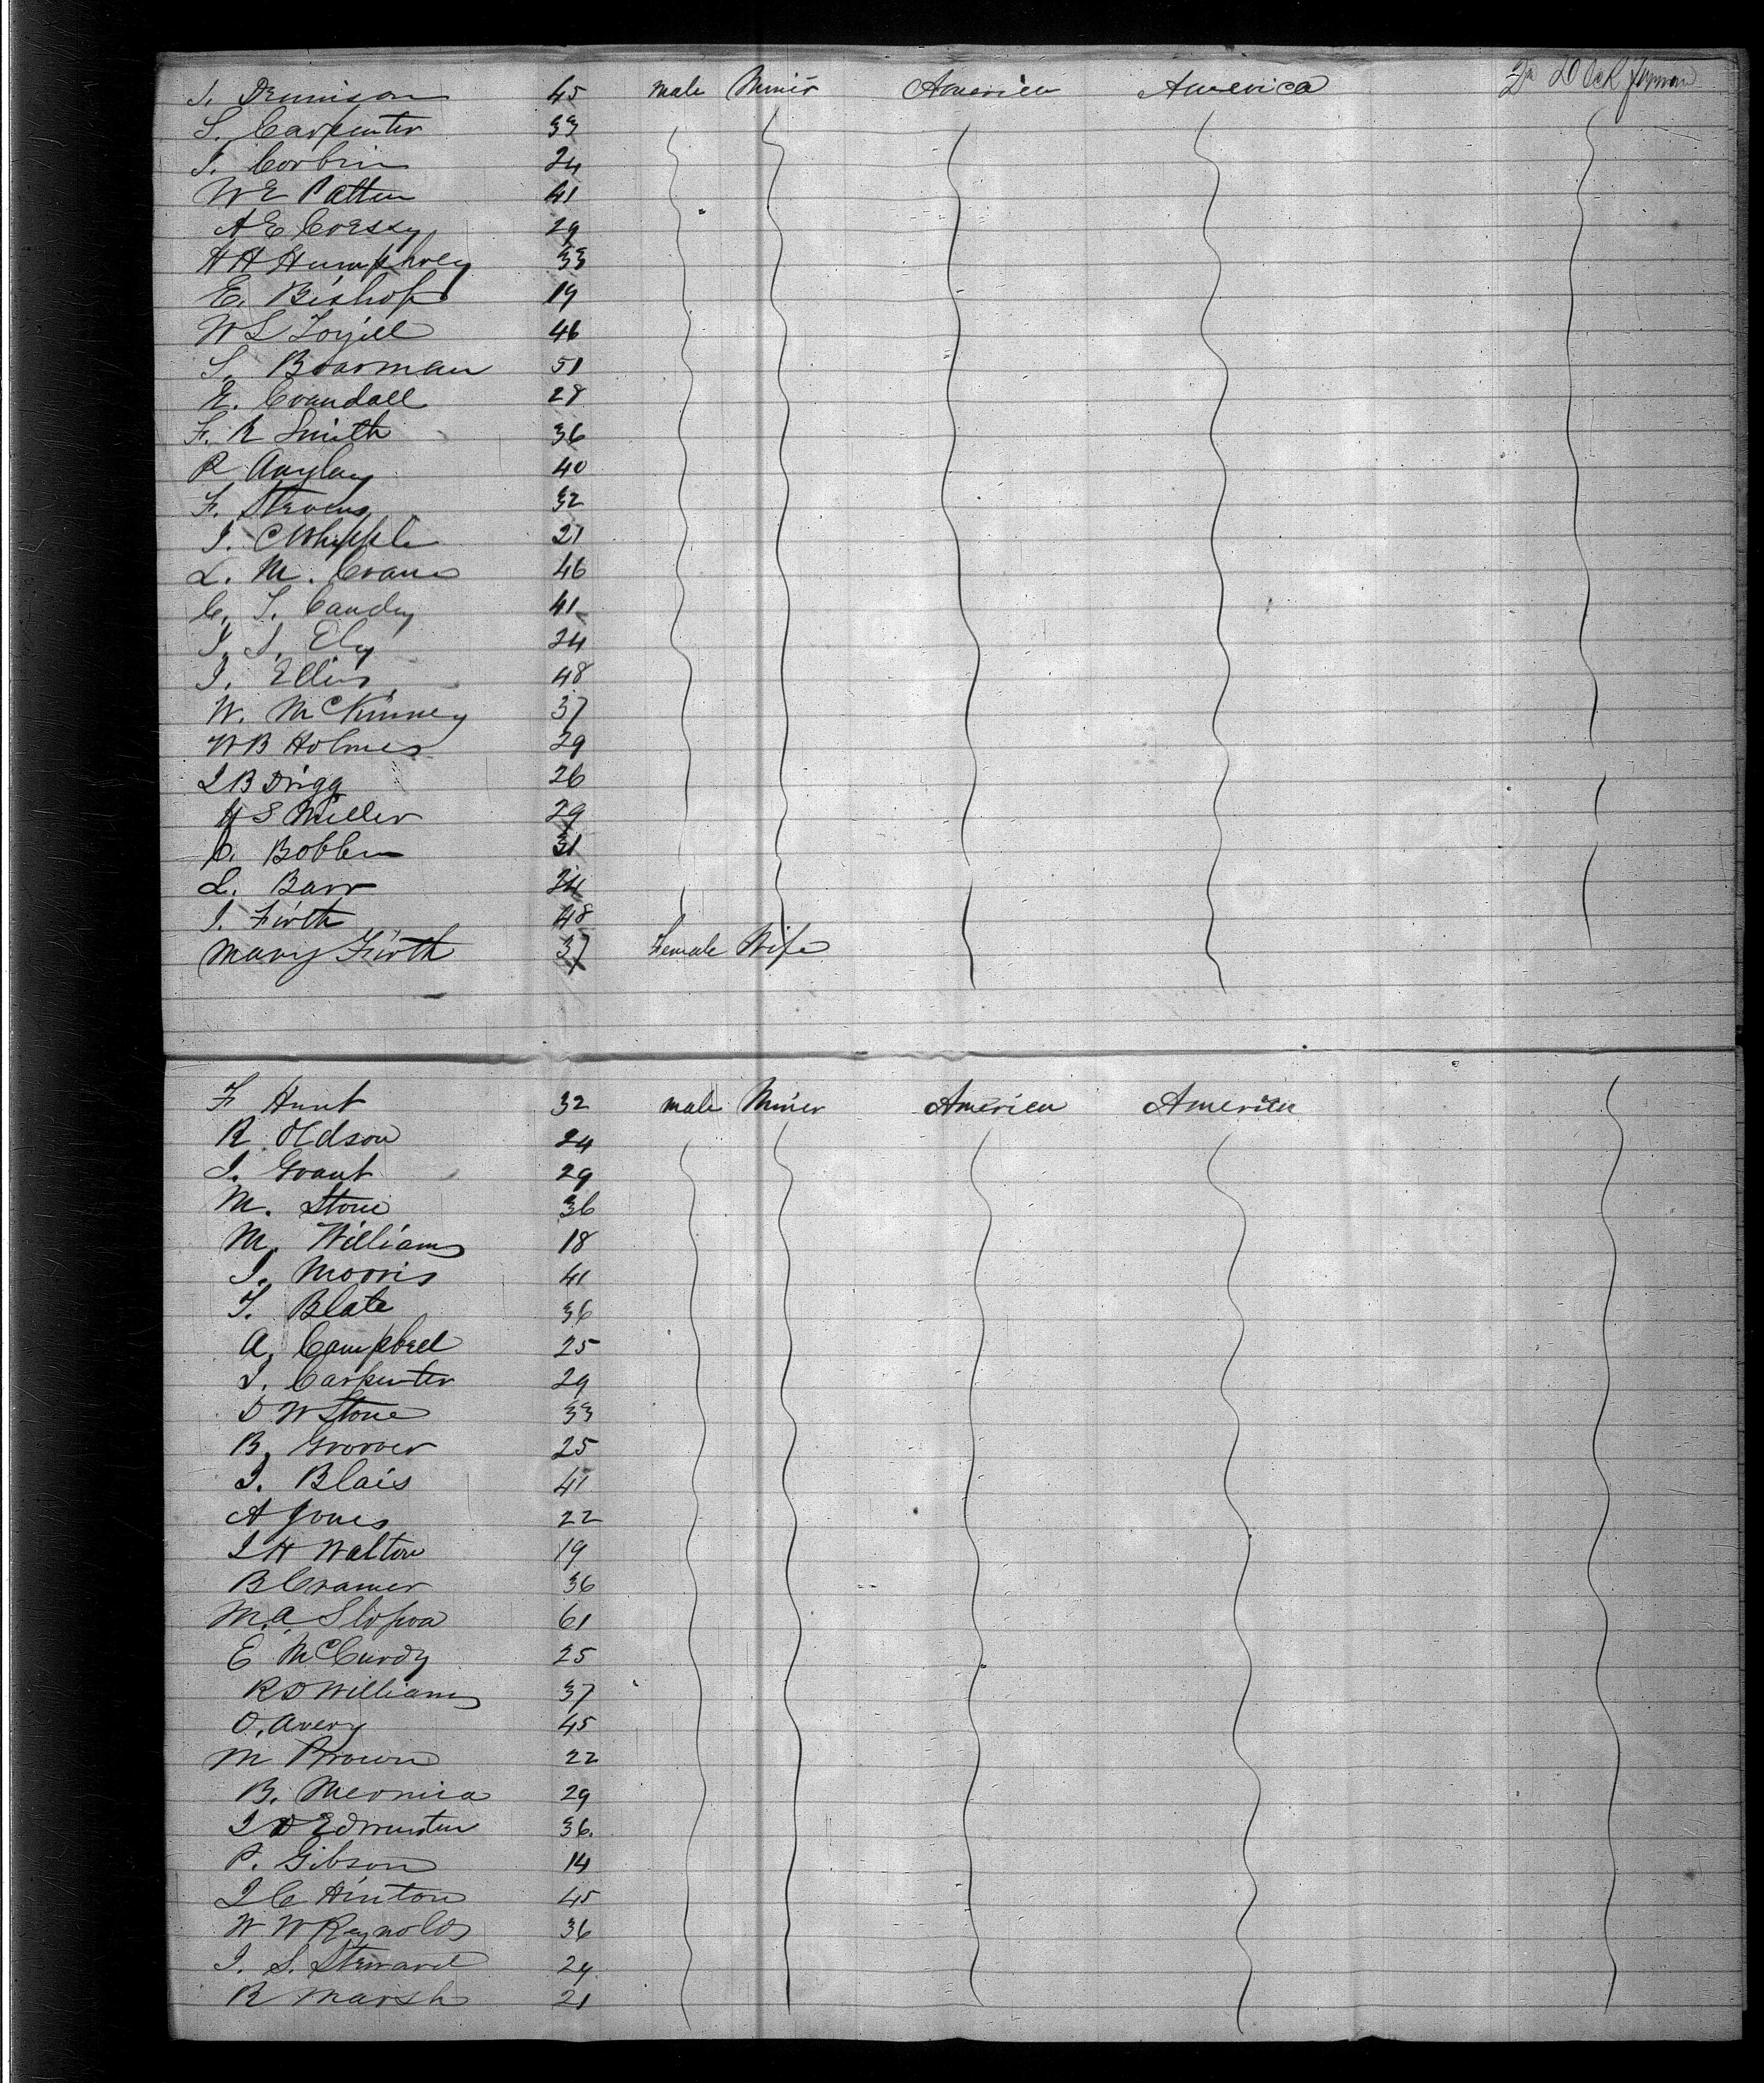 J. Dennison 45 male Miner America America 2n Deck forward
S. Carpenter 33
J. Corbin 24
W E Patten 41
A E Coessy 29
H H Humphrey 33
E. Bishop 19
W L 46
S. Boarman 51
E. Crandall 28
F. R Smith 36
R 40
F. Stevens 32
J. C Whipple 21
L. M. Crane 46
C. T. Candy 41
J. J. Ely 24
J. Ellis 48
W. McKinney 37
W B Holmes 29
J B Drigg 26
H S Miller 29
C. Bobben 31
L. Barr 24
J. Firth 48
Mary Firth 37 Female Wife
F Hunt 32 male Miner America America
R. Oldson 24
J. Grant 29
M. Stone 36
M. Williams 18
J. Morris 41
T. Blate 36
A. Campbell 25
J. Carpenter 29
D W Stone 33
B. Groover 25
J. Blais 41
A Jones 22
J H Walton 19
B Cramer 36
M. A. 61
E McCurdy 25
R D Williams 37
O. Avery 45
M Brown 22
B. 29
J D Edmunsten 36.
P. Gibson 14
J C Hinton 45
W W Reynolds 36
J. S. Steward 24
R Marsh 21